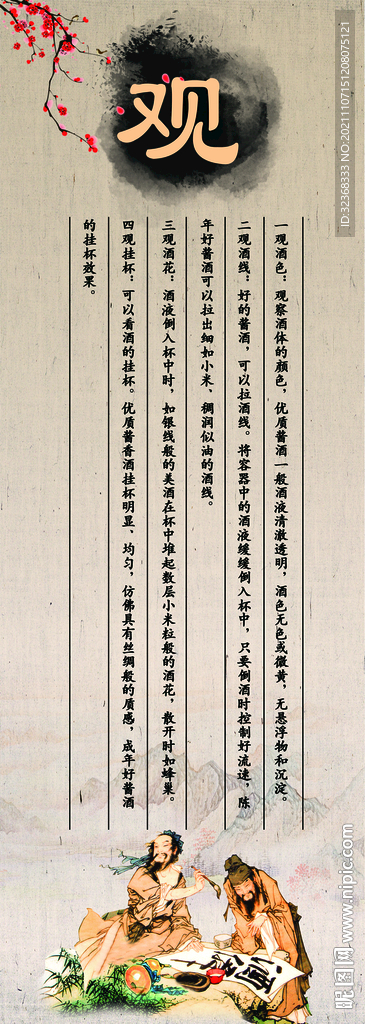 观
一观酒色：观察酒体的颜色，优质酱酒一般酒液清澈透明，酒色无色或微黄，无悬浮物和沉淀。
二观酒线：好的酱酒，可以拉酒线。将容器中的酒液缓缓倒入杯中，只要倒酒时控制好流速，陈
年好酱酒可以拉出细如小米、稠润似油的酒线。
三观酒花：酒液倒入杯中时，如银线般的美酒在杯中堆起数层小米粒般的酒花，散开时如蜂巢。
四观挂杯：可以看酒的挂杯。优质酱香酒挂杯明显、均匀，仿佛具有丝绸般的质感，成年好酱酒
的挂杯效果。
ID:32368333 NO:20211107151208075121
昵图网 www.nipic.com